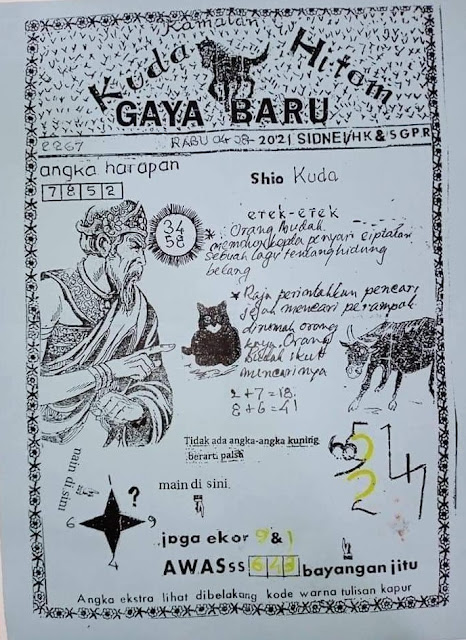 Ramalan
Kuda Hitam
GAYA BARU
2267
RABU 04-08-2021 SIDNEI/HK & SGPR
angka harapan
7852
Shio Kuda
34
58
erek-erek
* Orang budak
sebuah lagu tentang hidung
belang
* Raja perintahkan pencari
jejak mencari perampok
dirumah orang
kaya. Orang
budak ikut
mencarinya
2+7=18.
8+6=41
Tidak ada angka-angka kuning
berarti palsu
main di sini
?
6
9
4
main di sini.
jaga ekor 9 & 1
AWASss 623 bayangan jitu
Angka ekstra lihat dibelakang kode warna tulisan kapur